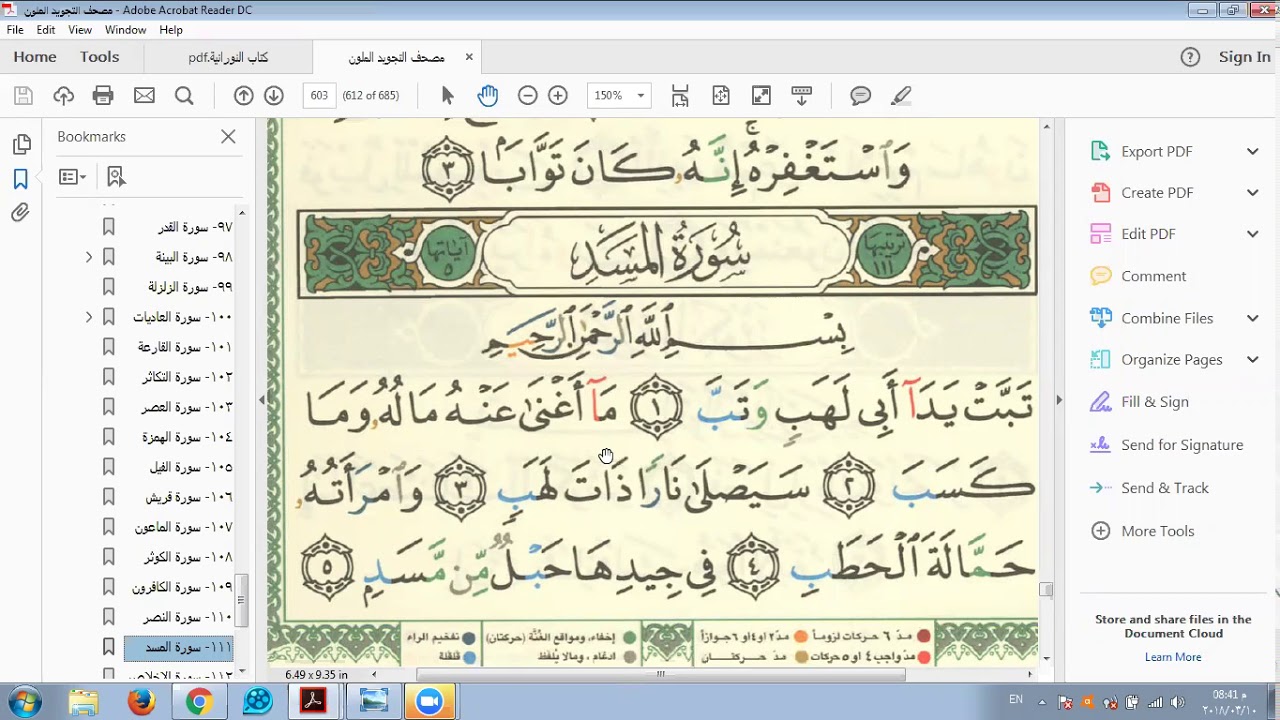 مصحف التجويد الملون - Adobe Acrobat Reader DC
File Edit View Window Help
Home Tools كتاب النورانية.pdf مصحف التجويد الملون × ? Sign In
603 (612 of 685) 150%
Bookmarks
٩٧- سورة القدر
٩٨- سورة البينة
٩٩- سورة الزلزلة
١٠٠- سورة العاديات
١٠١- سورة القارعة
١٠٢- سورة التكاثر
١٠٣- سورة العصر
١٠٤- سورة الهمزة
١٠٥- سورة الفيل
١٠٦- سورة قريش
١٠٧- سورة الماعون
١٠٨- سورة الكوثر
١٠٩- سورة الكافرون
١١٠- سورة النصر
١١١- سورة المسد
١١٢- سورة الإخلاص
وَٱسْتَغْفِرْهُ إِنَّهُۥ كَانَ تَوَّابَۢا ٣
ترتيبها ١١١ سُورَةُ المَسَدِ آياتها ٥
بِسْمِ ٱللَّهِ ٱلرَّحْمَٰنِ ٱلرَّحِيمِ
تَبَّتْ يَدَآ أَبِى لَهَبٍ وَتَبَّ ١ مَآ أَغْنَىٰ عَنْهُ مَالُهُۥ وَمَا
كَسَبَ ٢ سَيَصْلَىٰ نَارًا ذَاتَ لَهَبٍ ٣ وَٱمْرَأَتُهُۥ
حَمَّالَةَ ٱلْحَطَبِ ٤ فِى جِيدِهَا حَبْلٌ مِّن مَّسَدٍ ٥
مدّ ٦ حركات لزوماً مدّ ٢ او ٤ او ٦ جوازاً إخفاء، ومواقع الغُنَّة (حركتان) تفخيم الراء
مدّ واجب ٤ او ٥ حركات مدّ حركتان ادغام، ومالا يُلفَظ قلقلة
6.49 x 9.35 in
Export PDF
Create PDF
Edit PDF
Comment
Combine Files
Organize Pages
Fill & Sign
Send for Signature
Send & Track
More Tools
Store and share files in the
Document Cloud
Learn More
EN
08:41 م
٢٠١٨/٠٣/١٠